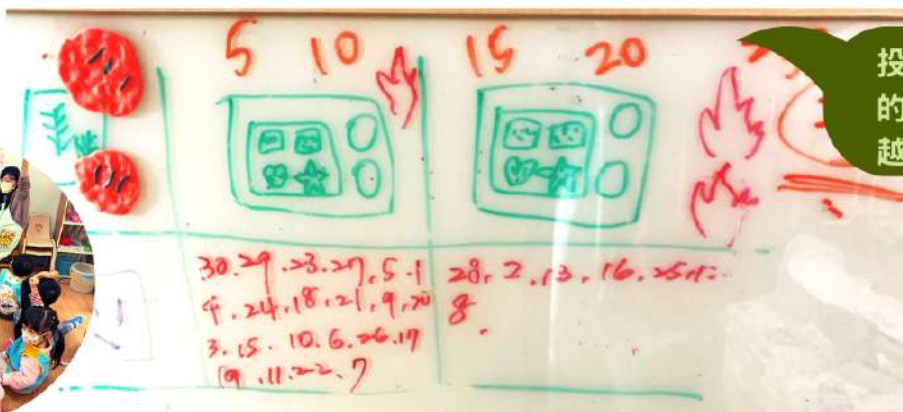 5 10 15 20
30.29.23.27.5.1
4.24.18.21.9.20
3.15.10.6.26.17
19.11.22.7
28.2.13.16.25.12
8
投
的
越